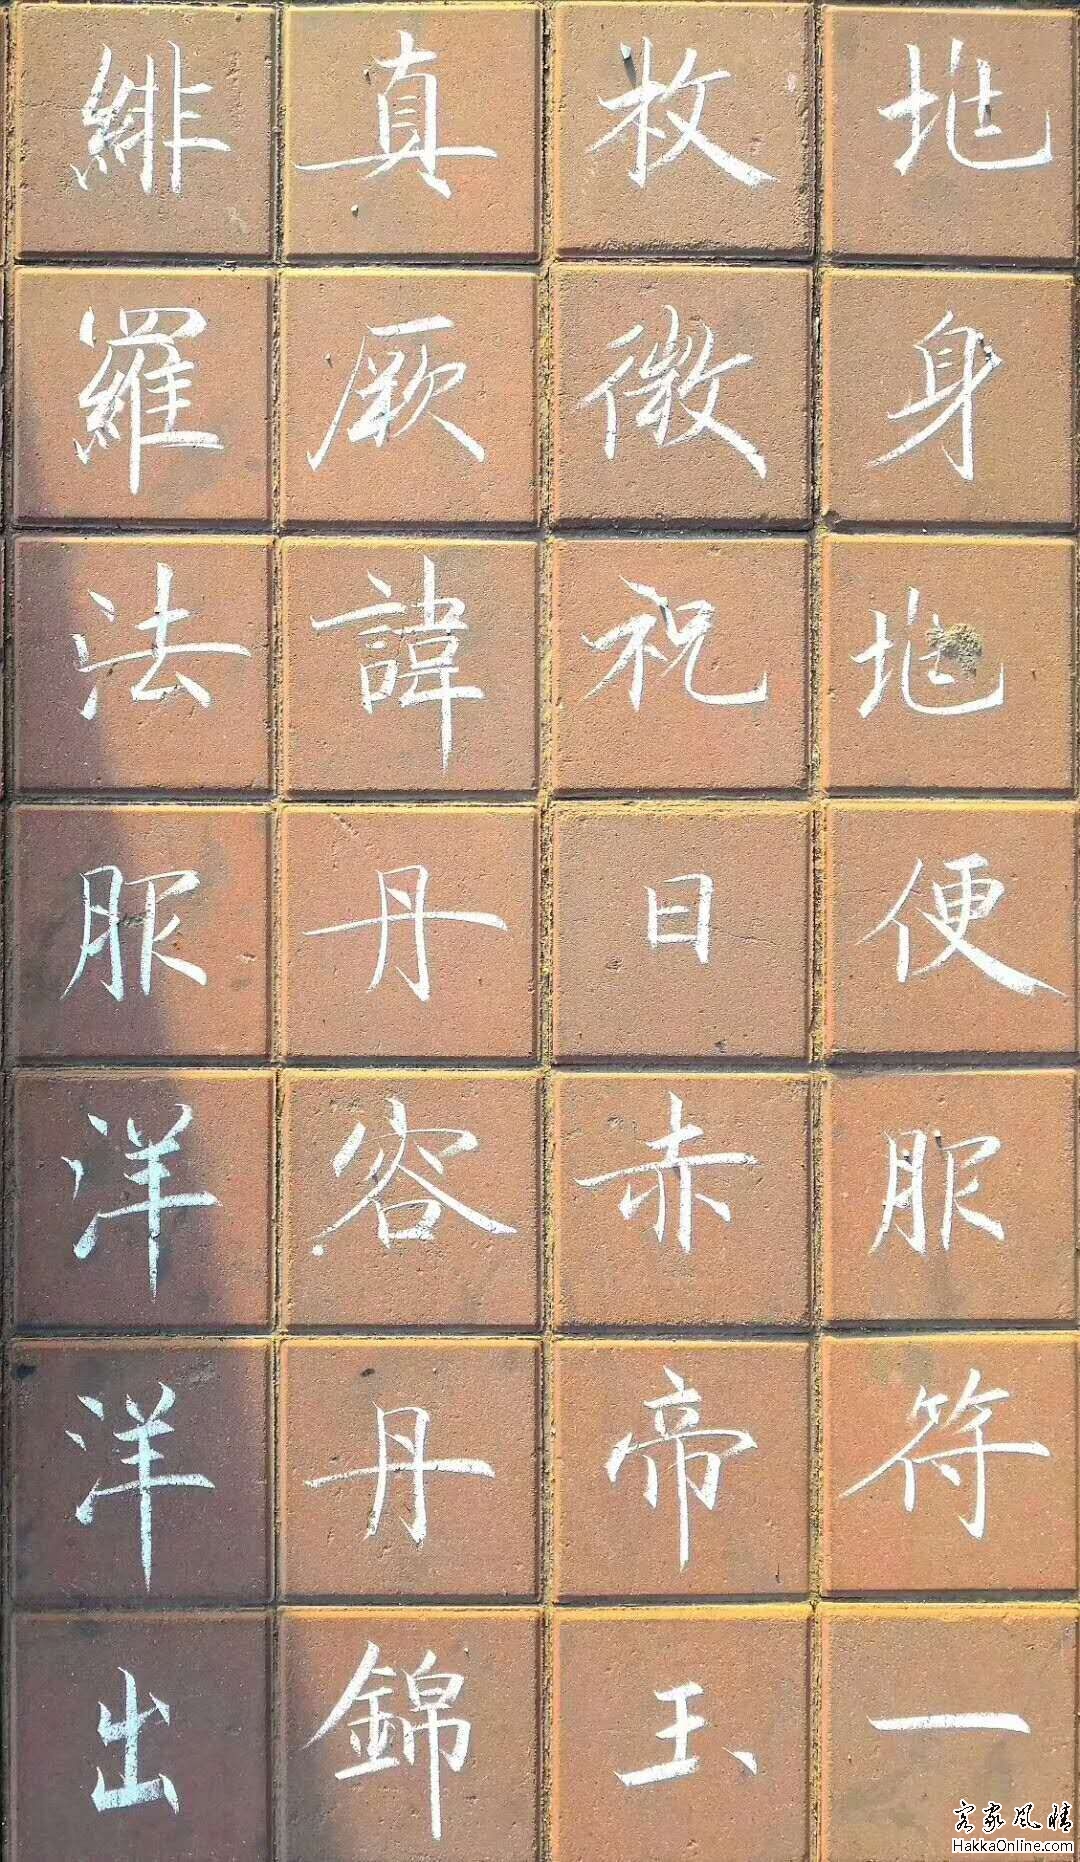 地身地便服符一
枚微祝日赤帝玉
真厥諱丹容丹錦
緋羅法服洋洋出
客家风情
HakkaOnline.com